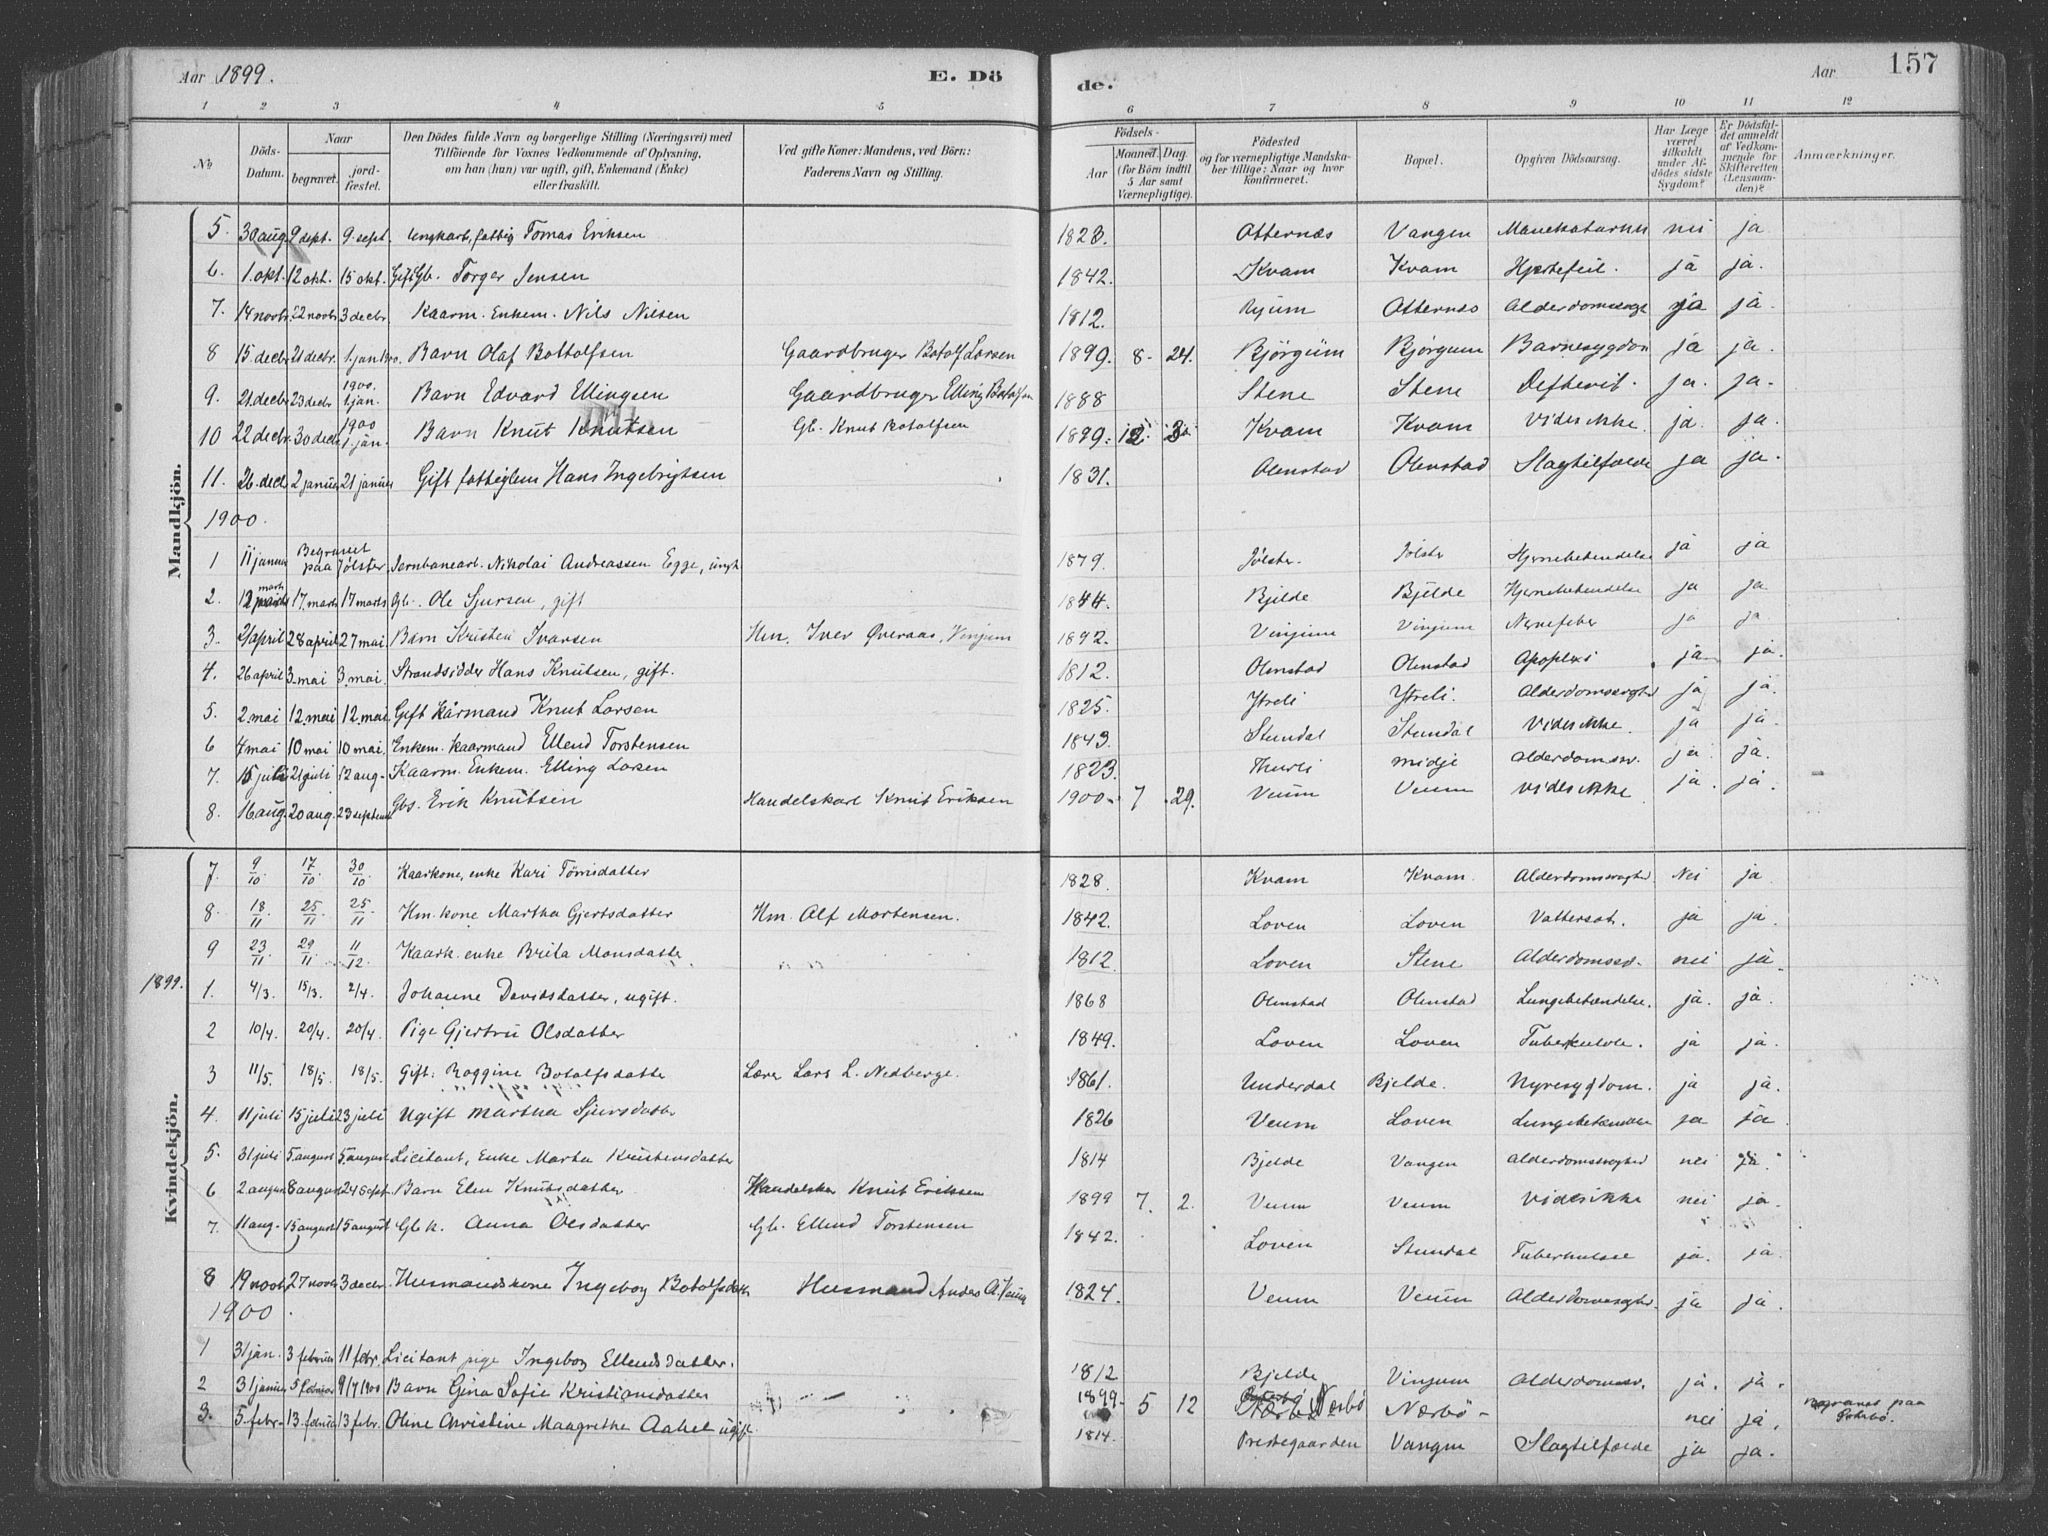 Aar 1899. E. Dö de. Aar 157
1 2 3 4 5 6 7 8 9 10 11 12
No Döds-Datum. Naar begravet. jordfæstet. Den Dödes fulde Navn og borgerlige Stilling (Næringsvei) med Tilföiende for Voxnes Vedkommende af Oplysning, om han (hun) var ugift, gift, Enkemand (Enke) eller fraskilt. Ved gifte Koner: Mandens, ved Börn: Faderens Navn og Stilling. Födsels- Aar Maaned. Dag. (for Börn indtil 5 Aar samt Værnepligtige). Födested og for værnepligtige Mandskaber tillige: Naar og hvor konfirmeret. Bopæl. Opgiven Dödsaarsag. Har Læge været tilkaldt under Afdödes sidste Sygdom? Er Dödsfaldet anmeldt af Vedkommende for Skifteretten (Lensmanden)? Anmærkninger.
Mandkjön.
5. 30 aug. 9 sept. 9. sept. Ungkarl, fattig Tomas Eriksen 1828. Otternæs Vangen nei ja
6. 1. okt. 12 okt. 15 okt. Gift Gb. Torger Jensen 1842. Kvam Kvam Hjertefeil. ja ja.
7. 14 novbr. 22 novbr. 3 decbr. Kaarm. Enkem. Nils Nilsen 1812. Ryum Otternæs Alderdomssvagh ja ja.
8 15. decbr 21 decbr. 1. jan Barn Olaf Bottolfsen Gaardbruger Botolf Larsen 1899. 8- 24. Bjørgum Bjørgum Barnesygdom ja ja.
9. 21. decbr 23 decbr 1900. 1 jan. Barn Edvard Ellingsen Gaardbruger Elling Botolfsen 1888 Stene Stene ja. ja.
10 22 decbr. 30 decbr. 1900 1. jan. Barn Knut Knutsen Gb. Knut Botolfsen 1899. Kvam Kvam vides ikke. ja. ja.
11. 26. decbr 2 januar 21 januar Gift fattiglem Hans Ingebrigtsen 1831. Olmstad Olmstad Slagtilfælde ja ja.
1900.
1 11 januar Begravet paa Jølster Jernbanearb. Nikolai Andreassen Egge, ungk 1879. Jølster. Jølster Hjernebetændelse ja ja
2. 12 marts 17. marts 17 marts Gb. Ole Sjursen, gift 1844. Bjelde Bjelde Hjernebetændelse ja ja
3. 21 april 28 april 27 mai Barn Kristen Ivarsen Hm. Iver Øveraas, Vinjum 1892. Vinjum Vinjum Nervefeber ja ja
4. 26 april 3. mai 3. mai. Strandsidder Hans Knutsen, gift. 1812. Olmstad Olmstad Apoplexi ja ja.
5. 2 mai 12 mai 12 mai Gift Kårmand Knut Larsen 1825. Ytreli Ytreli. Alderdomssvaghed ja ja.
6 7 mai 10 mai 10 mai. Enkem. Kaarmand Ellend Torstensen 1843. Stundal Stundal vides ikke. ja ja.
7. 15 juli 21 juli 12 aug. Kaarm. Enkem. Elling Larsen 1823. Thurli midje Alderdomsv. ja. ja.
8. 16 aug. 20 aug. 23 septembr Gbs. Erik Knutsen Handelskarl Knut Eriksen 1900. 7 29. Veum Veum vides ikke ja. ja.
Kvindekjön.
7. 9/10 17/10 30/10 Kaarkone, enke Kari Tømisdatter 1828. Kvam Kvam. Alderdomssvaghed Nei ja
8. 18/11 25/11 25/11. Hm. kone Martha Gjertsdatter Hm. Alf Mortensen. 1842. Loven Loven Vattersot. ja ja.
9 23/11 29/11 11/12 Kaark. enke Brita Monsdatter 1812. Loven Stene Alderdomssv. nei ja.
1899. 1. 4/3 15/3. 2/4. Johanne Davidsdatter, ugift. 1868 Olmstad Olmstad Lungebetændelse. ja. ja.
2 10/4. 20/4 20/4 Pige Gjertru Olsdatter 1849. Loven Loven Tuberkulose. ja ja.
3 11/5. 18/5 18/5. Gift. Raggine Botolfsdatter Lærer Lars L. Nedberge. 1861. Underdal Bjelde. Nyresygdom. ja ja.
4. 11 juli 15 juli 23 juli Ugift Martha Sjursdatter 1826 Veum Loven Lungebetændelse ja ja
5. 31 juli 5. august 5. august Licitant, Enke Marta Kristensdatter 1814 Bjelde Vangen Alderdomssvaghed nei ja.
6 2 august 8 august 24 sept. Barn Elen Knutsdatter Handelskar Knut Eriksen 1899 7. 2. Veum Veum vides ikke nei ja
7. 11 aug. 15 august 15 august Gb k. Anna Olsdatter Gb. Ellend Torstensen 1842. Loven Stundal Tuberkulose ja. ja.
8 19 novbr. 27 novbr. 3 decbr. Husmandskone Ingeborg Botolfsdatter Husmand Anders A. Veum 1824. Veum Veum Alderdomssvaghed. ja ja.
1900.
1 31 jan. 3 februar 11 febr. Licitant pige Ingeborg Ellendsdatter. 1812 Bjelde Vinjum Alderdomssv. ja. ja.
2 31 januar 5 februar 9/4 1900 Barn Gina Sofie Kristiansdatter 1899. 5 12 Nærbø Nærbø nei ja. Begravet paa Nærbø.
3. 5 febr. 13 februar 13 febr. Oline Christine Maagrethe Aabel ugift. 1814. Prestegaarden Vangen Slagtilfælde ja ja.